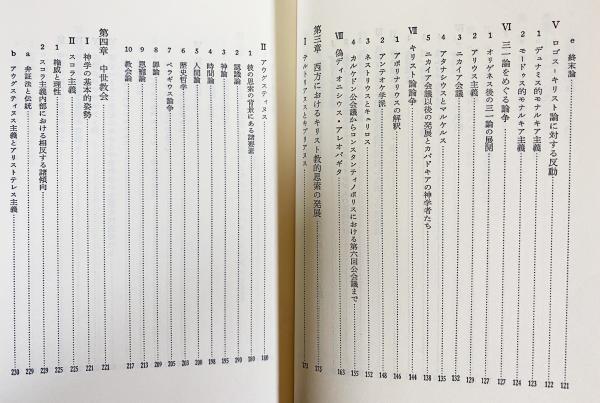 e 終末論 121
V ロゴス=キリスト論に対する反動 122
1 デュナミス的モナルキア主義 123
2 モードゥス的モナルキア主義 124
VI 三一論をめぐる論争 127
1 オリゲネス後の三一論の展開 127
2 アリウス主義 129
3 ニカイア会議 132
4 アタナシウスとマルケルス 135
5 ニカイア会議以後の発展とカパドキアの神学者たち 138
VII キリスト論論争 144
1 アポリナリウスの解釈 146
2 アンテオケ学派 148
3 ネストリウスとキュリロス 152
4 カルケドン公会議からコンスタンティノポリスにおける第六回公会議まで 155
VIII 偽ディオニシウス・アレオパギタ 163
第三章 西方におけるキリスト教的思索の発展 173
I テルトゥリアヌスとキプリアヌス 173
II アウグスティヌス 180
1 彼の思索の背景にある諸要素 180
2 認識論 190
3 神論 195
4 時間論 198
5 人間論
6 歴史哲学 203
7 ペラギウス論争 205
8 罪論 207
9 恩寵論 213
10 教会論 217
第四章 中世教会 221
I 神学の基本的姿勢 221
II スコラ主義 225
1 権威と理性 225
2 スコラ主義内部における相反する諸傾向 229
a 弁証法と伝統 229
b アウグスティヌス主義とアリストテレス主義 230